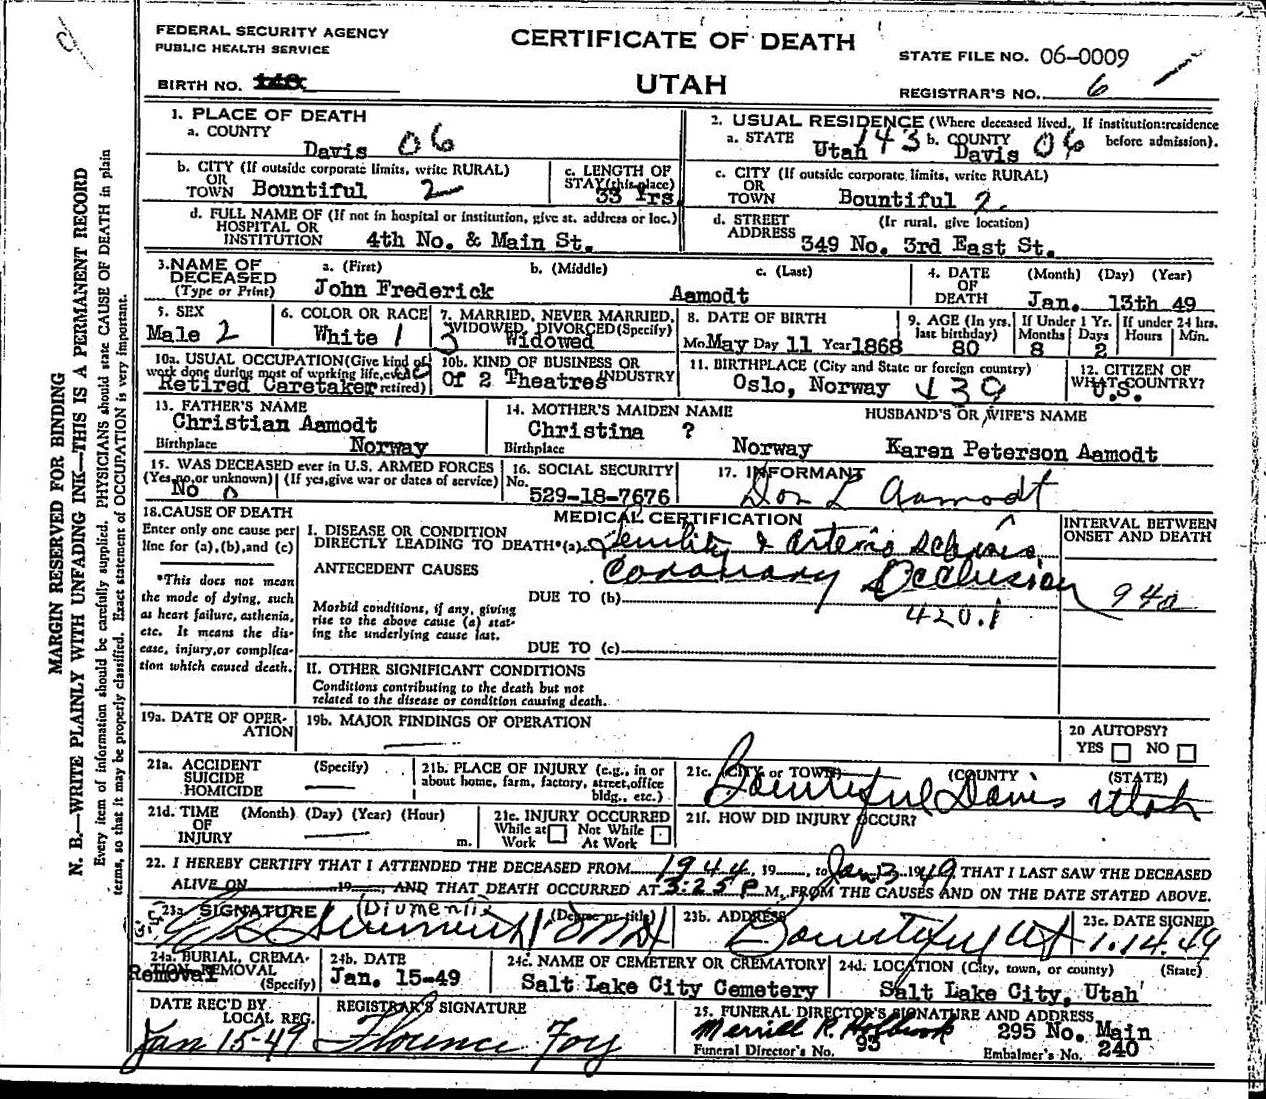 FEDERAL SECURITY AGENCY
PUBLIC HEALTH SERVICE
CERTIFICATE OF DEATH
STATE FILE NO. 06-0009
BIRTH NO.
UTAH
REGISTRAR'S NO. 6
1. PLACE OF DEATH
a. COUNTY
Davis 06
2. USUAL RESIDENCE (Where deceased lived. If institution:residence before admission).
a. STATE Utah 143 b. COUNTY Davis 06
b. CITY (If outside corporate limits, write RURAL)
OR
TOWN Bountiful 2
c. LENGTH OF
STAY (this place)
33 Yrs
c. CITY (If outside corporate limits, write RURAL)
OR
TOWN Bountiful 2
d. FULL NAME OF (If not in hospital or institution, give st. address or loc.)
HOSPITAL OR
INSTITUTION 4th No. & Main St.
d. STREET (Ir rural, give location)
ADDRESS 349 No. 3rd East St.
3. NAME OF
DECEASED
(Type or Print)
a. (First) b. (Middle) c. (Last)
John Frederick Aamodt
4. DATE
OF
DEATH
(Month) (Day) (Year)
Jan. 13th 49
5. SEX
Male 2
6. COLOR OR RACE
White 1
7. MARRIED, NEVER MARRIED,
WIDOWED, DIVORCED (Specify)
3 Widowed
8. DATE OF BIRTH
Mo. May Day 11 Year 1868
9. AGE (In yrs.
last birthday)
80
If Under 1 Yr.
Months Days
8 2
If under 24 hrs.
Hours Min.
10a. USUAL OCCUPATION (Give kind of
work done during most of working life, even if retired)
Retired Caretaker
10b. KIND OF BUSINESS OR
INDUSTRY
Of 2 Theatres
11. BIRTHPLACE (City and State or foreign country)
Oslo, Norway
12. CITIZEN OF
WHAT COUNTRY?
U.S.
13. FATHER'S NAME
Christian Aamodt
Birthplace Norway
14. MOTHER'S MAIDEN NAME
Christina ?
Birthplace Norway
HUSBAND'S OR WIFE'S NAME
Karen Peterson Aamodt
15. WAS DECEASED ever in U.S. ARMED FORCES
(Yes,no,or unknown) (If yes,give war or dates of service)
No 0
16. SOCIAL SECURITY
No.
529-18-7676
17. INFORMANT
Don L Aamodt
18. CAUSE OF DEATH
Enter only one cause per
line for (a), (b), and (c)
*This does not mean
the mode of dying, such
as heart failure, asthenia,
etc. It means the dis-
ease, injury,or complica-
tion which caused death.
MEDICAL CERTIFICATION
I. DISEASE OR CONDITION
DIRECTLY LEADING TO DEATH*(a) Senility & Arterio Sclerosis
ANTECEDENT CAUSES
Coronary Occlusion
DUE TO (b)
420.1
Morbid conditions, if any, giving
rise to the above cause (a) stat-
ing the underlying cause last.
DUE TO (c)
INTERVAL BETWEEN
ONSET AND DEATH
94a
II. OTHER SIGNIFICANT CONDITIONS
Conditions contributing to the death but not
related to the disease or condition causing death.
19a. DATE OF OPER-
ATION
19b. MAJOR FINDINGS OF OPERATION
20 AUTOPSY?
YES NO
21a. ACCIDENT
SUICIDE
HOMICIDE
(Specify)
21b. PLACE OF INJURY (e.g., in or
about home, farm, factory, street,office
bldg., etc.)
21c. (CITY or TOWN) (COUNTY (STATE)
Bountiful Davis Utah
21d. TIME
OF
INJURY
(Month) (Day) (Year) (Hour)
m.
21e. INJURY OCCURRED
While at Work Not While At Work
21f. HOW DID INJURY OCCUR?
22. I HEREBY CERTIFY THAT I ATTENDED THE DECEASED FROM 1944, 19, to Jan 13 1949 THAT I LAST SAW THE DECEASED
ALIVE ON 19, AND THAT DEATH OCCURRED AT 3:25 P M, FROM THE CAUSES AND ON THE DATE STATED ABOVE.
23a. SIGNATURE (Degree or title)
23b. ADDRESS
Bountiful Ut
23c. DATE SIGNED
1.14.49
24a. BURIAL, CREMA-
TION, REMOVAL
(Specify)
Removal
24b. DATE
Jan. 15-49
24c. NAME OF CEMETERY OR CREMATORY
Salt Lake City Cemetery
24d. LOCATION (City, town, or county) (State)
Salt Lake City, Utah
DATE REC'D BY
LOCAL REG.
Jan 15-49
REGISTRAR'S SIGNATURE
Florence Foy
25. FUNERAL DIRECTOR'S SIGNATURE AND ADDRESS
Merrill R. Holbrook 295 No. Main
Funeral Director's No. 93 Embalmer's No. 240
MARGIN RESERVED FOR BINDING
N. B.—WRITE PLAINLY WITH UNFADING INK—THIS IS A PERMANENT RECORD
Every item of information should be carefully supplied. PHYSICIANS should state CAUSE OF DEATH in plain
terms, so that it may be properly classified. Exact statement of OCCUPATION is very important.